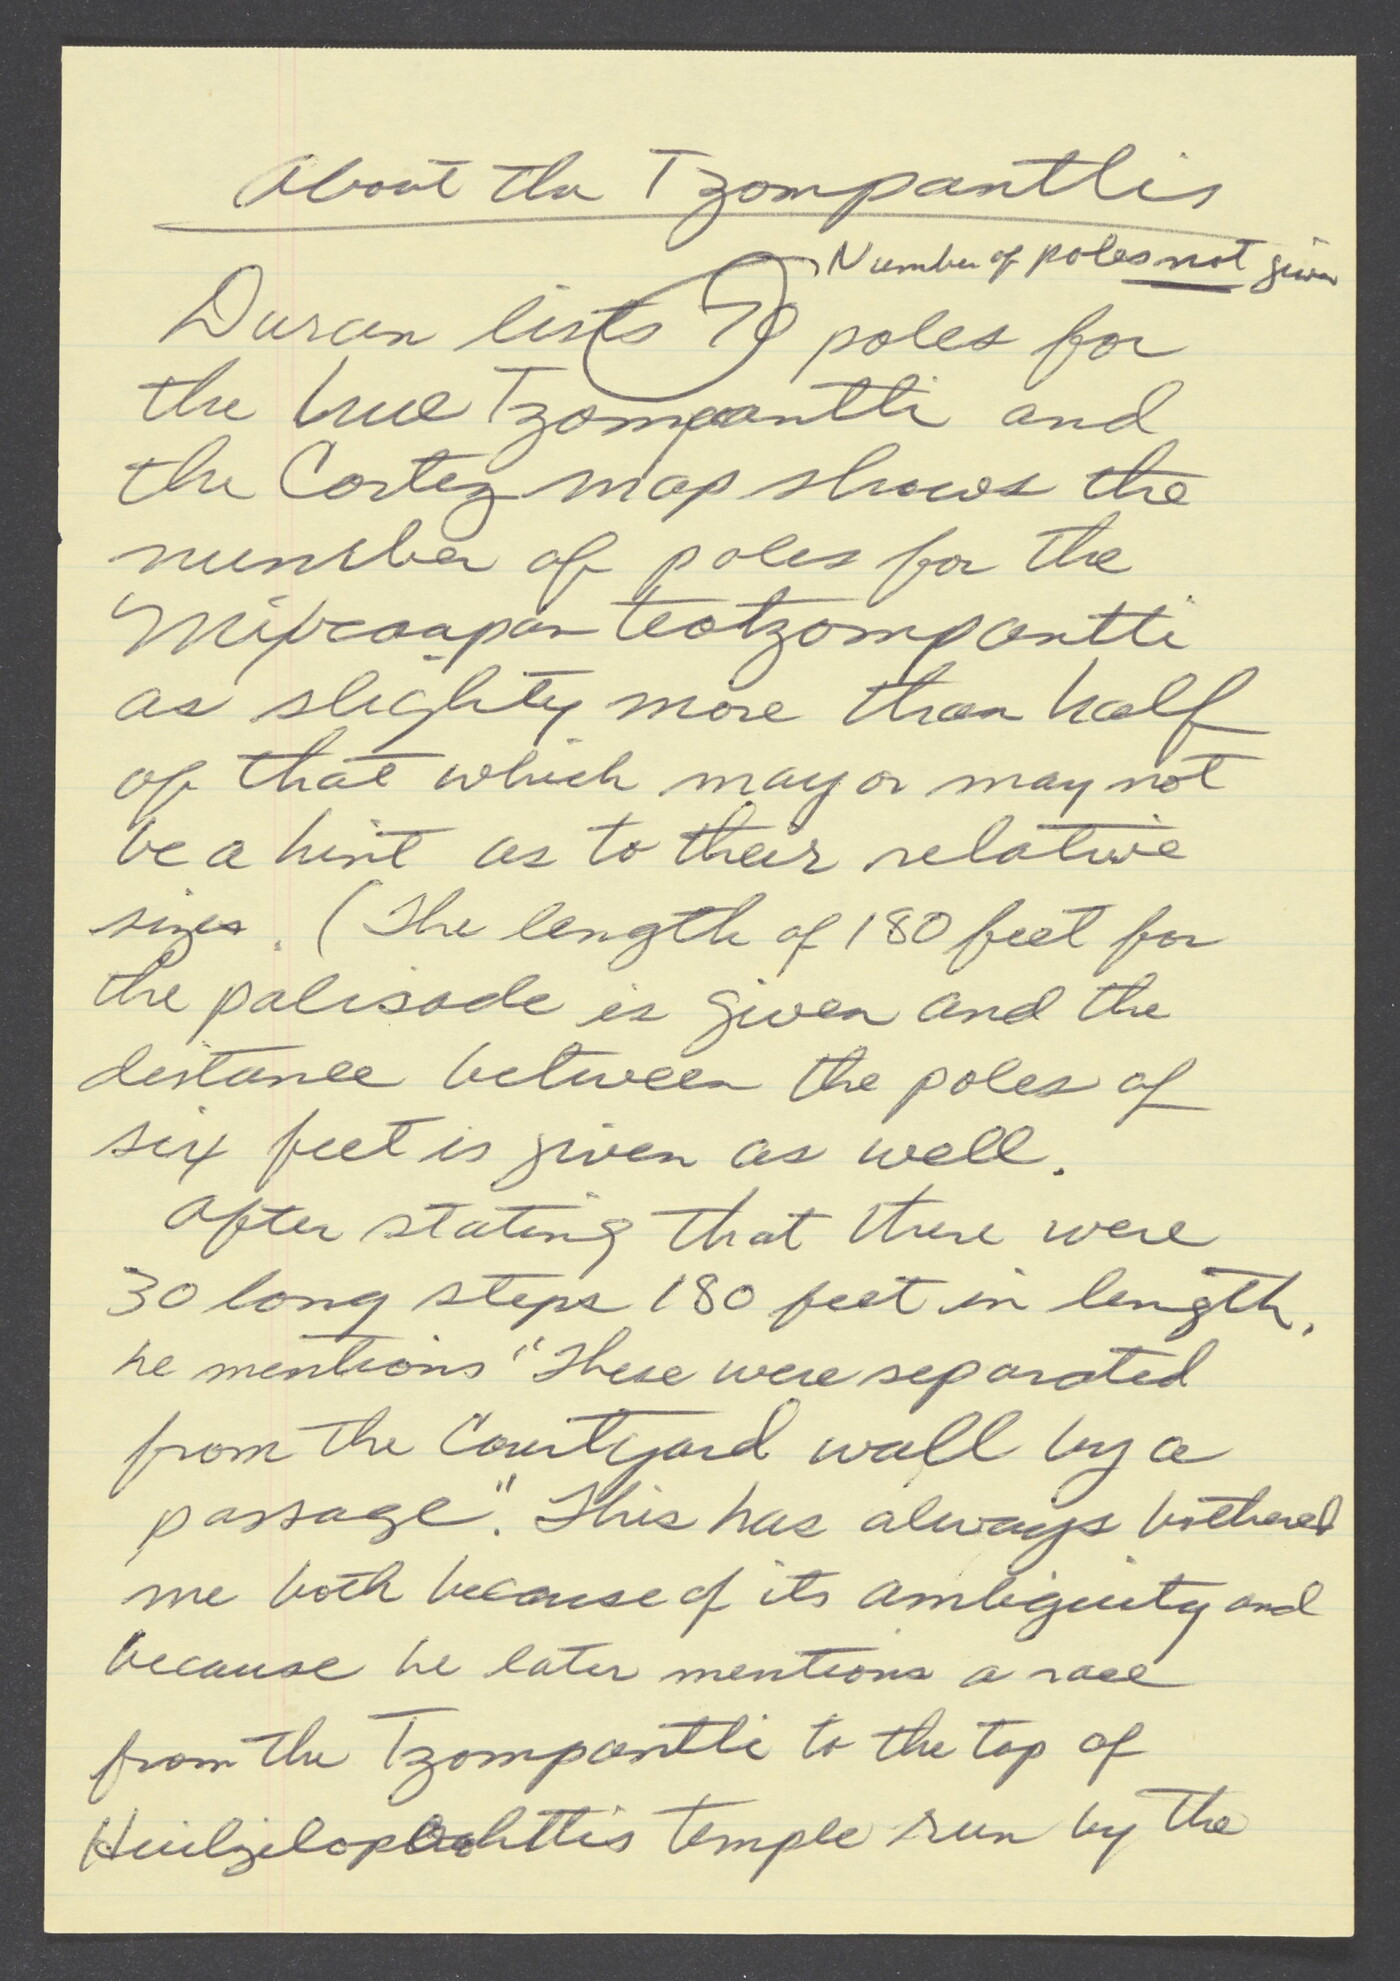 About the Tzompantlis
Number of poles not given
Duran lists 70 poles for
the hue Tzompantli and
the Cortez map shows the
number of poles for the
Mixcoapan teotzompantli
as slighty more than half
of that which may or may not
be a hint as to their relative
sizes. (The length of 180 feet for
the palisade is given and the
distance between the poles of
six feet is given as well.
After stating that there were
30 long steps 180 feet in length,
he mentions "These were separated
from the Courtyard wall by a
passage". This has always bothered
me both because of its ambiguity and
because he later mentions a race
from the Tzompantli to the top of
temple run by the